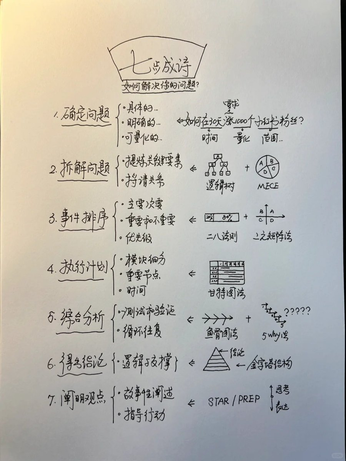 七步成诗
如何解决你的问题?
1. 确定问题
· 具体的...
· 明确的...
· 可量化的...
需求
如何在30天涨1000个小红书粉丝?
时间 量化 范围...
2. 拆解问题
· 提炼关键要素
· 拎清关系
逻辑树
+
A B C D
MECE
3. 事件排序
· 主要次要
· 重要和不重要
· 优先级
二八法则
+
B A C D
二元矩阵法
4. 执行计划
· 模块细分
· 重要节点
· 时间
甘特图法
5. 综合分析
· 测试和验证
· 循环往复
鱼骨图法
+
?????
5why法
6. 得出结论
· 逻辑与支撑
结论
金字塔结构
7. 阐明观点
· 故事性阐述
· 指导行动
STAR/PREP
思考
表达